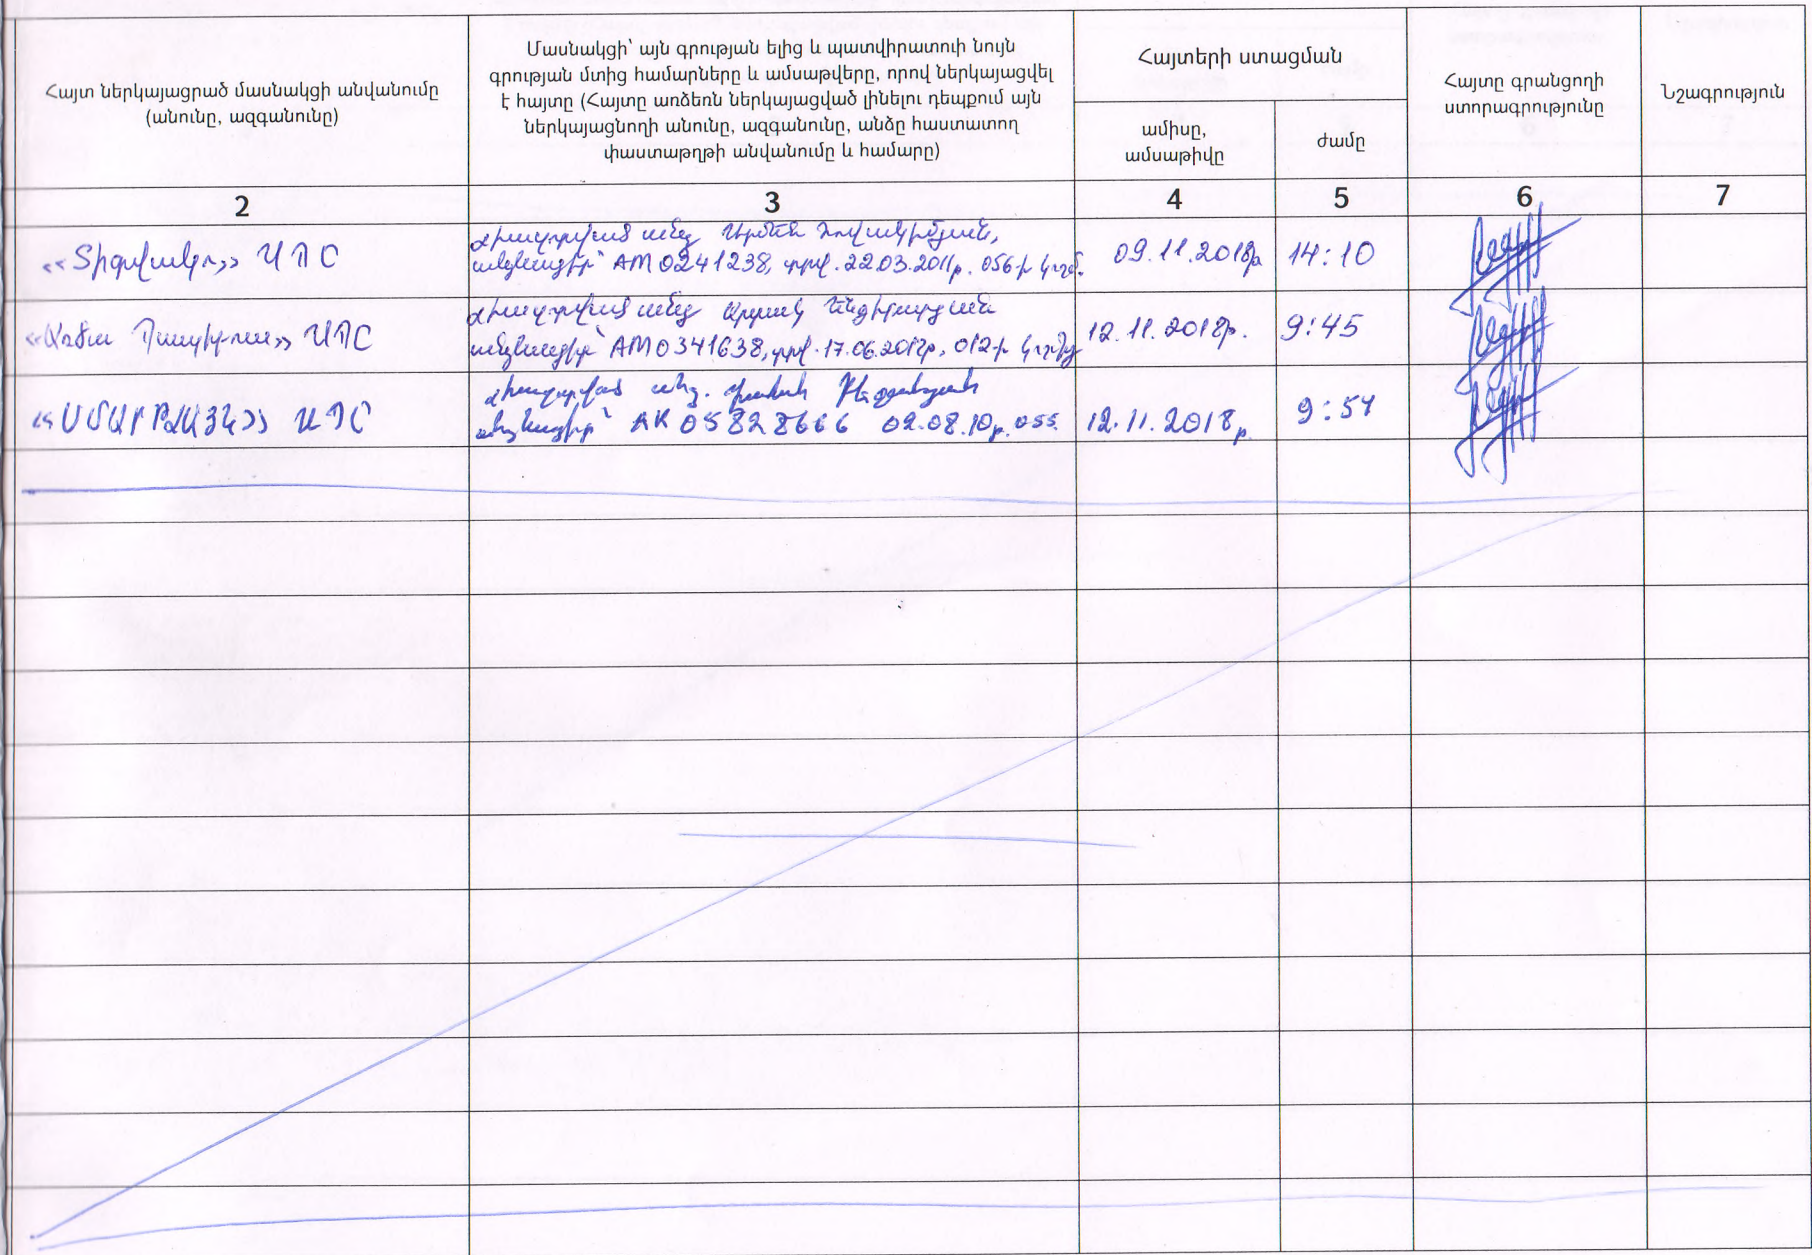 Հայտ ներկայացրած մասնակցի անվանումը
(անունը, ազգանունը)
Մասնակցի՝ այն գրության ելից և պատվիրատուի նույն
գրության մտից համարները և ամսաթվերը, որով ներկայացվել
է հայտը (Հայտը առձեռն ներկայացված լինելու դեպքում այն
ներկայացնողի անունը, ազգանունը, անձը հաստատող
փաստաթղթի անվանումը և համարը)
Հայտերի ստացման
ամիսը,
ամսաթիվը
ժամը
Հայտը գրանցողի
ստորագրությունը
Նշագրություն
2
3
4
5
6
7
«Տիգրվակո» ՍՊԸ
Լիազորված անձ Արմեն Հովակիմյան,
անձնագիր՝ AM0241238, տրվ. 22.03.2011թ. 056-ի կողմ.
09.11.2018թ
14:10
ՍՊԸ
Լիազորված անձ
անձնագիր՝ AM0341638, տրվ. 17.06.2012թ, 012-ի կողմից
12.11.2018թ.
9:45
«ՍՄԱՐԹԼԱՅՆ» ՍՊԸ
Լիազորված անձ.
անձնագիր՝ AK 05828666 02.08.10թ. 055
12.11.2018թ
9:57